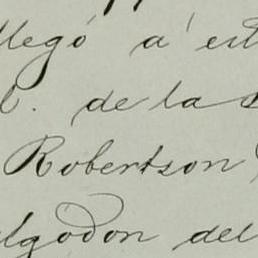 llegó a' est
de la
Robertson
algodon del